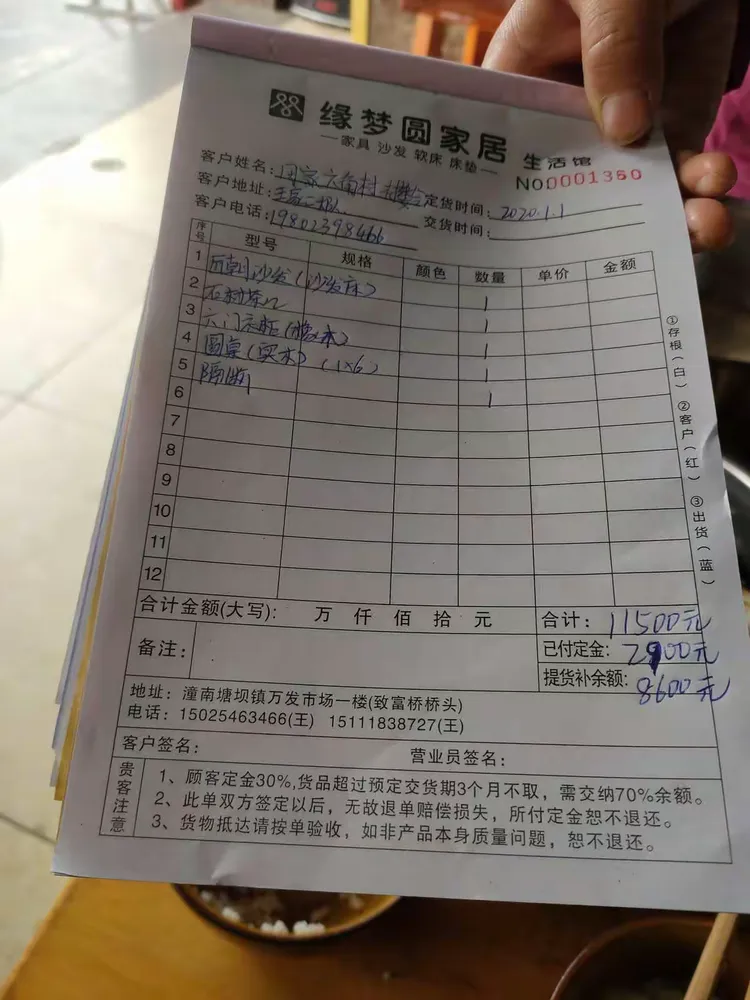 缘梦圆家居 生活馆
—家具 沙发 软床 床垫—
NO0001350
客户姓名: 六角村 定货时间: 2020.1.1
客户地址: 交货时间:
客户电话: 19802398466
序号 型号 规格 颜色 数量 单价 金额
1 沙发(沙发床) 1
2 茶几 1
3 六门衣柜 1
4 圆桌(实木) (1×6) 1
5 隔断 1
6
7
8
9
10
11
12
①存根(白) ②客户(红) ③出货(蓝)
合计金额(大写): 万 仟 佰 拾 元 合计: 11500元
备注: 已付定金: 2900元
提货补余额: 8600元
地址: 潼南塘坝镇万发市场一楼(致富桥桥头)
电话: 15025463466(王) 15111838727(王)
客户签名: 营业员签名:
贵客注意
1、顾客定金30%,货品超过预定交货期3个月不取,需交纳70%余额。
2、此单双方签定以后,无故退单赔偿损失,所付定金恕不退还。
3、货物抵达请按单验收,如非产品本身质量问题,恕不退还。